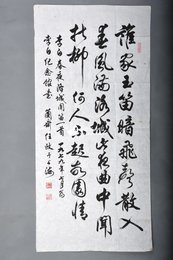 誰家玉笛暗飛聲散入
春風滿洛城此夜曲中聞
折柳何人不起故園情
李白春夜洛城聞笛一首一九七九年七月為
李白紀念館書 蘭齋任政于上海